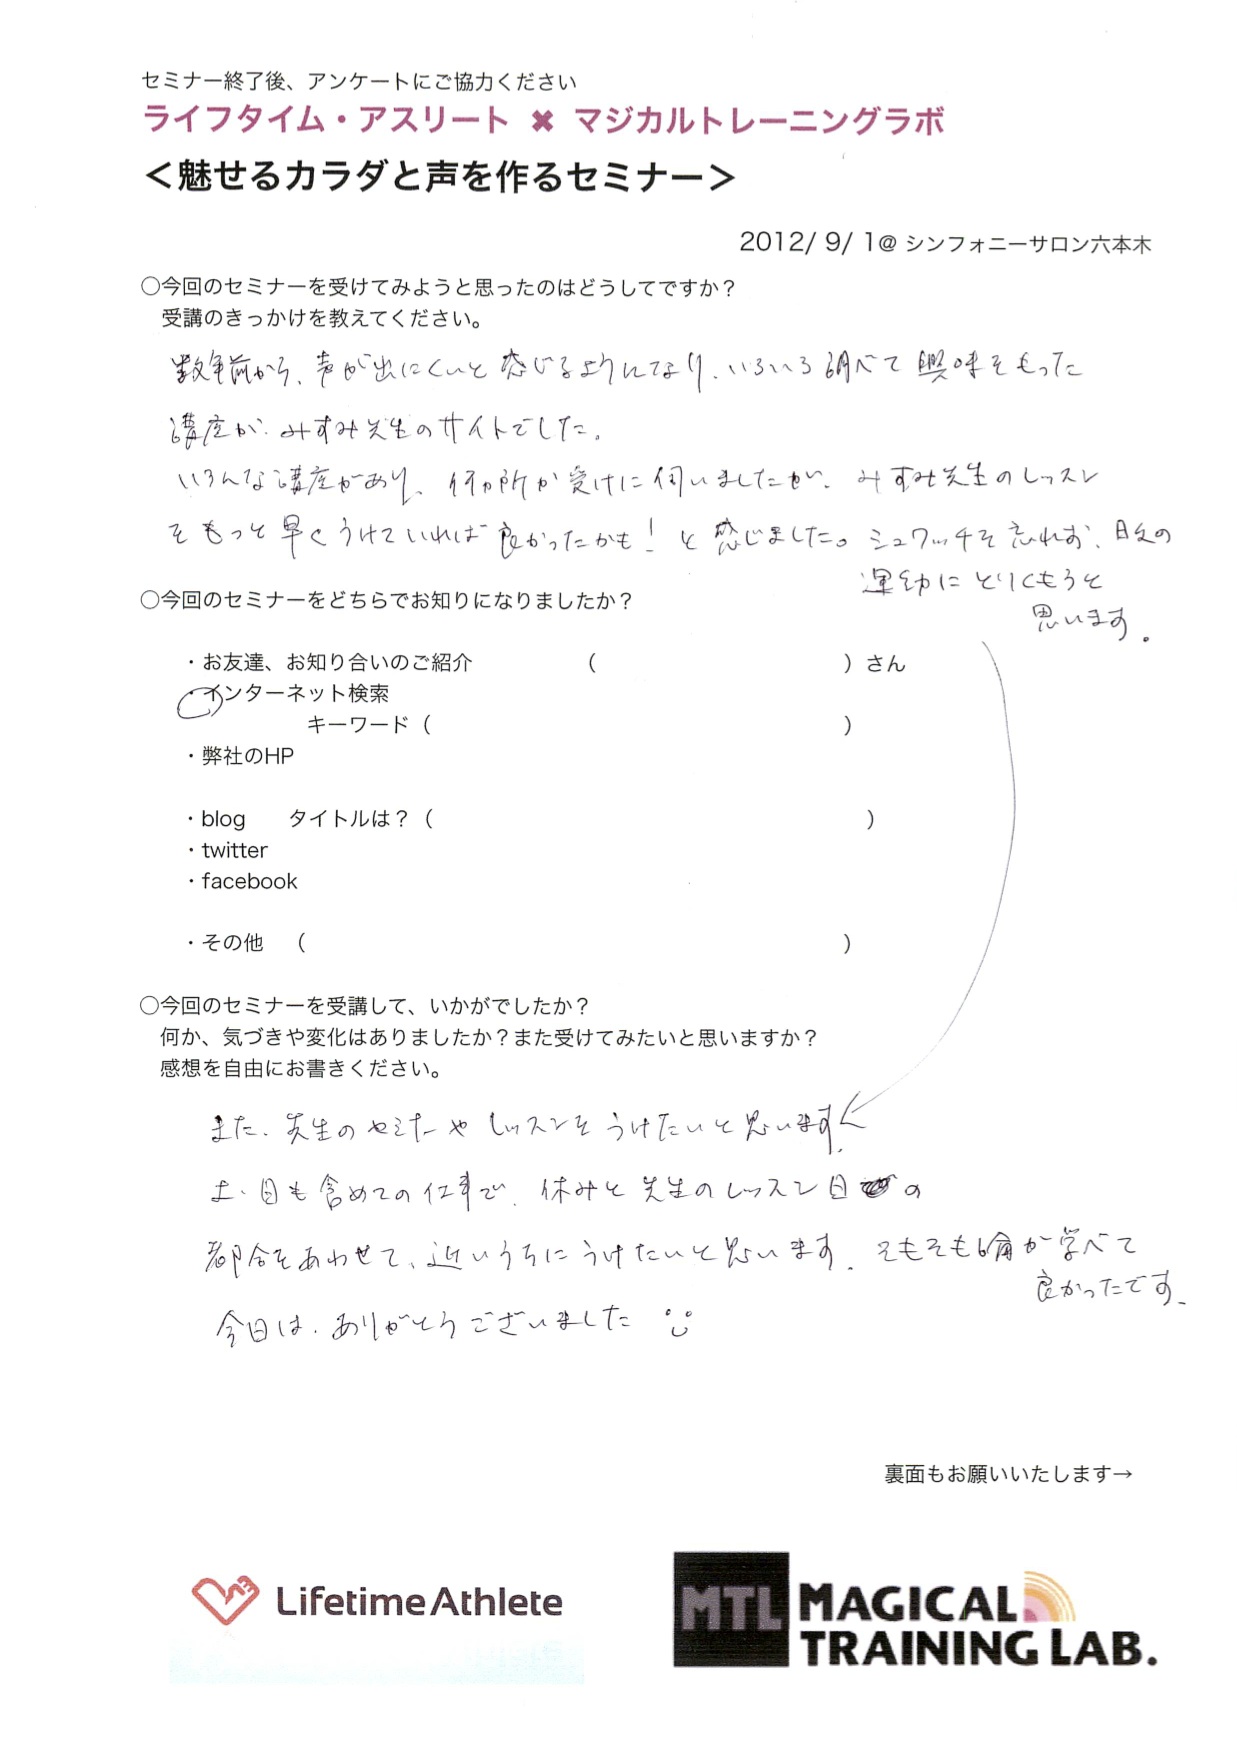 セミナー終了後、アンケートにご協力ください
ライフタイム・アスリート ✖ マジカルトレーニングラボ
＜魅せるカラダと声を作るセミナー＞
2012/ 9/ 1@ シンフォニーサロン六本木
○今回のセミナーを受けてみようと思ったのはどうしてですか？
受講のきっかけを教えてください。
数年前から、声が出にくいと感じるようになり、いろいろ調べて興味をもった
講座が、みすみ先生のサイトでした。
いろんな講座があり、何カ所か受けに伺いましたが、みすみ先生のレッスン
をもっと早くうけていれば良かったかも！と感じました。シュワッチを忘れず、日々の
運動にとりくもうと
思います。
○今回のセミナーをどちらでお知りになりましたか？
・お友達、お知り合いのご紹介 （ ）さん
・インターネット検索
キーワード（ ）
・弊社のHP
・blog タイトルは？（ ）
・twitter
・facebook
・その他 （ ）
○今回のセミナーを受講して、いかがでしたか？
何か、気づきや変化はありましたか？また受けてみたいと思いますか？
感想を自由にお書きください。
また、先生のセミナーやレッスンをうけたいと思います。
土・日も含めての仕事で、休みと先生のレッスン日の
都合をあわせて、近いうちにうけたいと思います。そもそも論が学べて
良かったです。
今日は、ありがとうございました
裏面もお願いいたします→
Lifetime Athlete
MTL MAGICAL
TRAINING LAB.